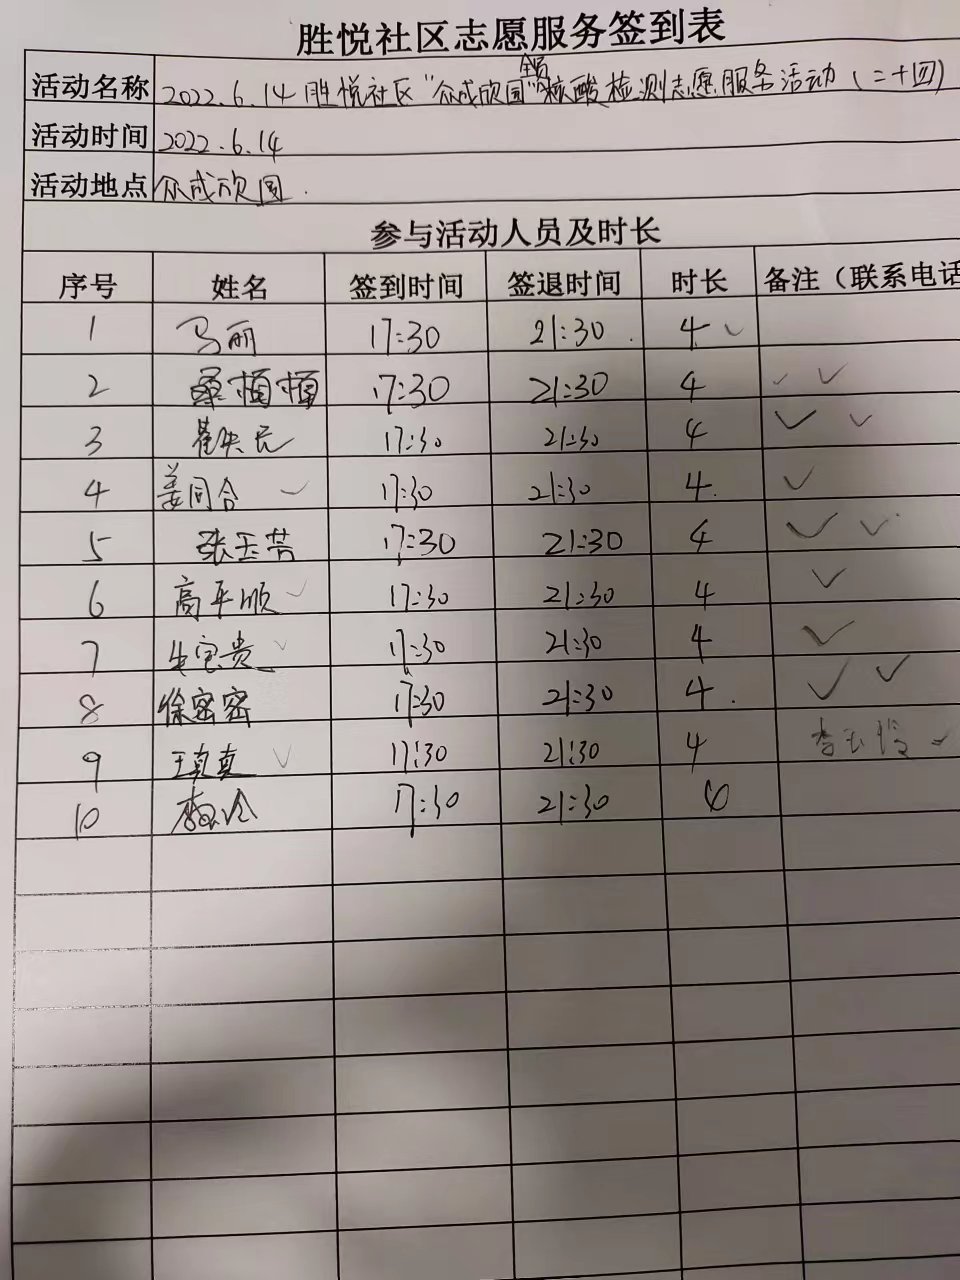 胜悦社区志愿服务签到表
活动名称 2022.6.14胜悦社区"众成欣园"核酸检测志愿服务活动(二十四)
活动时间 2022.6.14
活动地点 众成欣园.
参与活动人员及时长
序号 姓名 签到时间 签退时间 时长 备注(联系电话
1 马丽 17:30 21:30 4 ✓
2 桑 17:30 21:30 4 ✓ ✓
3 崔 17:30 21:30 4 ✓ ✓
4 姜同合 ✓ 17:30 21:30 4 ✓
5 张玉芳 17:30 21:30 4 ✓ ✓
6 高平顺 ✓ 17:30 21:30 4 ✓
7 宝贵 ✓ 17:30 21:30 4 ✓
8 徐密密 17:30 21:30 4 ✓ ✓
9 王真真 ✓ 17:30 21:30 4 李 ✓
10 17:30 21:30 4